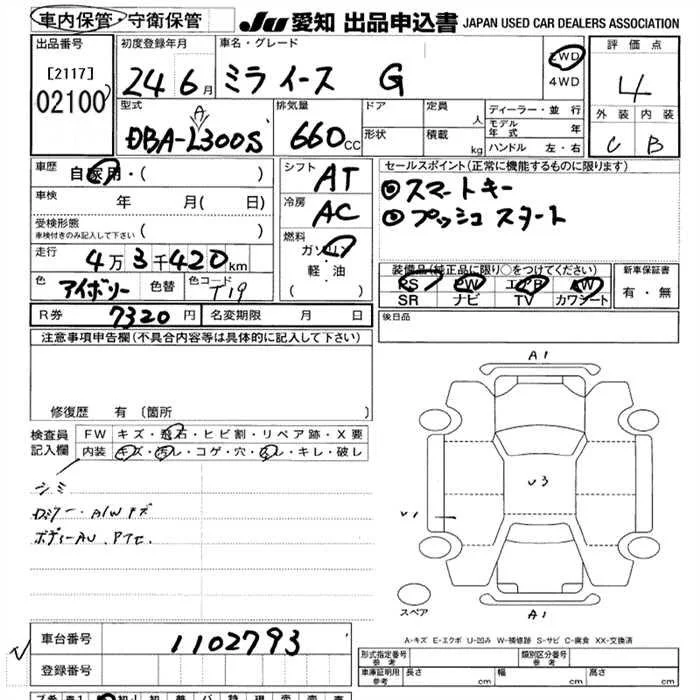 車内保管・守衛保管 JU 愛知 出品申込書 JAPAN USED CAR DEALERS ASSOCIATION
出品番号 初度登録年月 車名・グレード 評価点
[2117] 24年6月 ミライース G 2WD
02100 4WD 4
型式 排気量 ドア 定員 人 ディーラー・並行 外装 内装
A モデル年式 年
DBA-L300S 660cc 形状 積載 kg ハンドル 左・右 C B
車歴 自家用・( ) シフト AT セールスポイント(正常に機能するものに限ります)
車検 年 月( 日) 冷房 AC ①スマートキー
受検形態 ②プッシュスタート
車検付きのみ記入して下さい ( ) 燃料
走行 4万3千420km ガソリン
軽・油 装備品(純正品に限り○をつけてください) 新車保証書
色 アイボリー 色替 色コード T19 ( ) PS PW エアB AW 有・無
SR ナビ TV カワシート
R券 7320円 名変期限 月 日 後日品
注意事項申告欄(不具合内容等は具体的に記入して下さい)
修復歴 有 〔箇所
検査員 FW キズ・飛石・ヒビ割・リペア跡・X要
記入欄 内装 キズ・汚レ・コゲ・穴・スレ・キレ・破レ
シミ
A1
U3
A1
スペア
A-キズ E-エクボ U-凹み W-補修跡 S-サビ C-腐食 XX-交換済
車台番号 1102793
登録番号
型式指定番号 参考 類別区分番号 参考
車庫証明用 参考 長さ cm 幅 cm 高さ cm